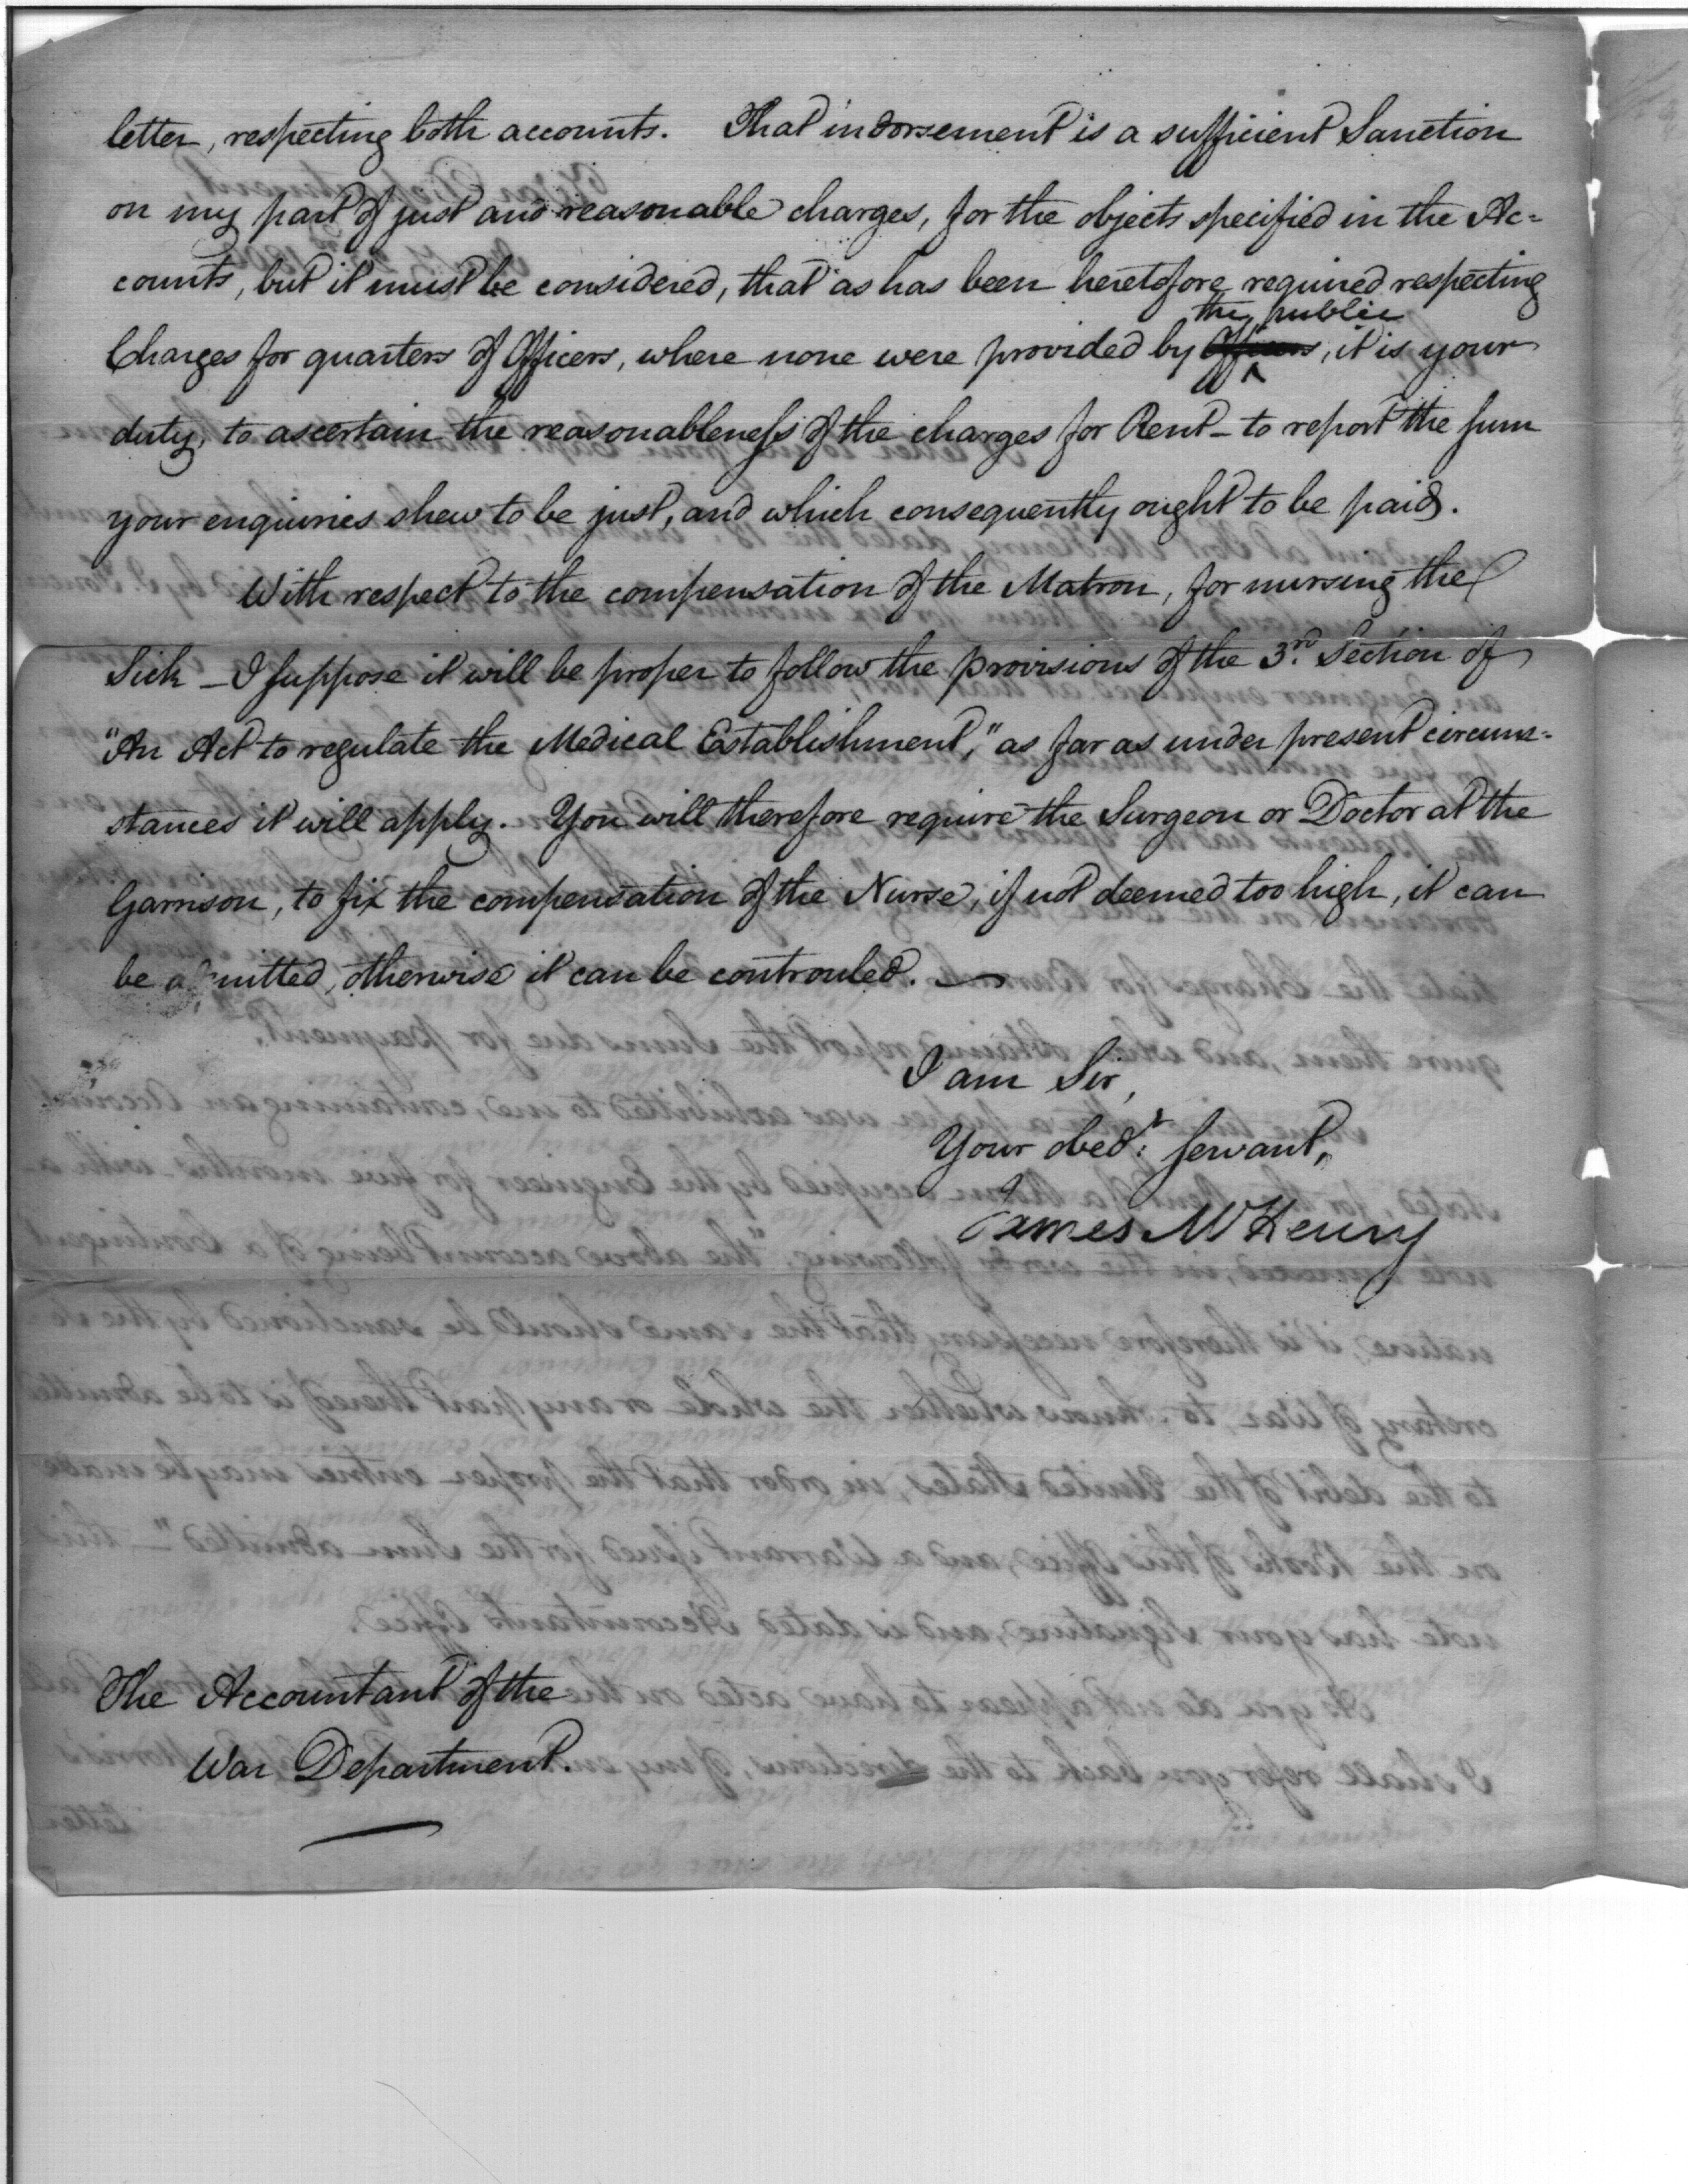 letter, respecting both accounts. That indorsement is a sufficient Sanction
on my part of just and reasonable charges, for the objects specified in the Ac=
counts, but it must be considered, that as has been heretofore required respecting
the public
Charges for quarters of Officers, where none were provided by Officers, it is your
duty, to ascertain the reasonableness of the charges for Rent - to report the sum
your enquiries shew to be just, and which consequently ought to be paid.
With respect to the compensation of the Matron, for nursing the
Sick - I suppose it will be proper to follow the provisions of the 3rd. Section of
"An Act to regulate the Medical Establishment," as far as under present circum=
stances it will apply. You will therefore require the Surgeon or Doctor at the
Garrison, to fix the compensation of the Nurse, if not deemed too high, it can
be admitted, otherwise it can be controuled. —
I am Sir,
Your obedt. servant,
James McHenry
The Accountant of the
War Department.